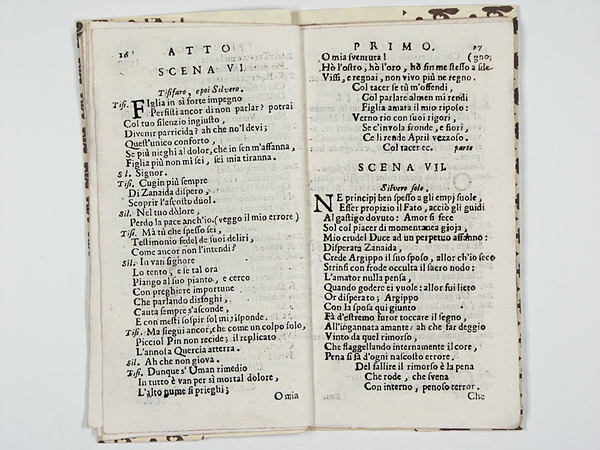 16
ATTO
SCENA VI.
Tisifaro, e poi Silvero.
Tiſ. Figlia in sì forte impegno
Perſiſti ancor di non parlar? potrai
Col tuo ſilenzio ingiuſto,
Divenir parricida? ah che no'l devi;
Queſt'unico conforto,
Se più nieghi al dolor, che in ſen m'affanna,
Figlia più non mi ſei, ſei mia tiranna.
Sil. Signor.
Tiſ. Cugin più ſempre
Di Zanaida diſpero,
Scoprir l'aſcoſto duol.
Sil. Nel tuo dolore,
Perdo la pace anch'io. (veggo il mio errore)
Tiſ. Mà tù che ſpeſſo ſei,
Teſtimonio fedel de ſuoi deliri,
Come ancor non l'intendi?
Sil. In van ſignore
Lo tento, e ſe tal ora
Piango al ſuo pianto, e cerco
Con preghiere importune
Che parlando disfoghi,
Cauta ſempre s'aſconde,
E con meſti ſoſpir ſol mi riſponde.
Tiſ. Ma ſiegui ancor, che come un colpo ſolo,
Picciol Pin non recide; il replicato
L'annoſa Quercia atterra.
Sil. Ah che non giova.
Tiſ. Dunque s' Uman rimedio
In tutto è van per sì mortal dolore,
L'alto nume ſi prieghi;
O mia
PRIMO.
17
O mia ſventura!
(gno;
Hò l'oſtro, hò l'oro, hò fin me ſteſſo a ſde-
Viſſi, e regnai, non vivo più ne regno.
Col tacer ſe tù m'offendi,
Col parlare almen mi rendi
Figlia amata il mio ripoſo:
Verno rio con ſuoi rigori,
Se c'invola fronde, e fiori,
Ce li rende April vezzoſo.
Col tacer ec. parte
SCENA VII.
Silvero ſolo.
NE principj ben ſpeſſo a gli empj ſuole,
Eſſer propizio il Fato, acciò gli guidi
Al gaſtigo dovuto: Amor ſi fece
Sol col piacer di momentanea gioja,
Mio crudel Duce ad un perpetuo affanno:
Diſperata Zanaida,
Crede Argippo il ſuo ſpoſo, allor ch'io ſeco
Strinſi con frode occulta il ſacro nodo:
L'amator nulla penſa,
Quando godere ei vuole: allor fui lieto
Or diſperato; Argippo
Con la ſpoſa qui giunto
Fà d'eſtremo furor toccare il ſegno,
All'ingannata amante: ah che far deggio
Vinto da quel rimorſo,
Che flaggellando internamente il core,
Pena ſi fà d'ogni naſcoſto errore.
Del fallire il rimorſo è la pena
Che rode, che ſvena
Con interno, penoſo terror.
Che